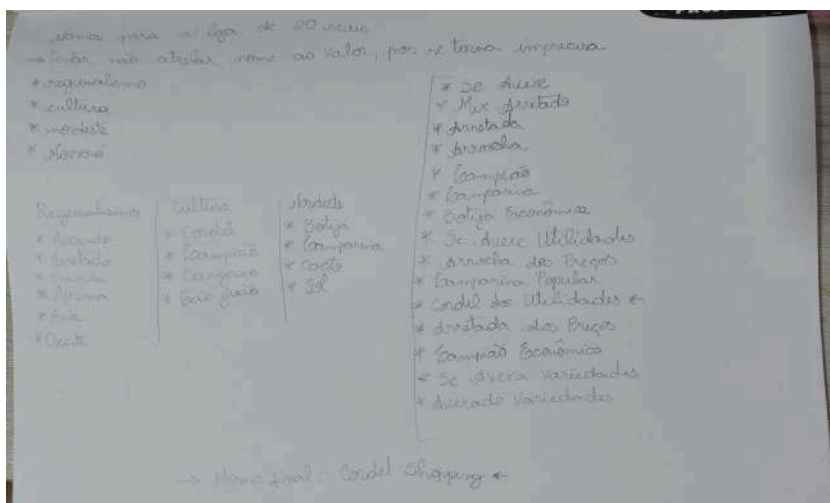 nomes para a loja de 20 reais
→ tentar não atribuir nome ao valor, pois se torna impreciso
* regionalismo
* cultura
* nordeste
* Mossoró
Regionalismo
* Avexado
* Arretado
* Arrocha
* Apruma
* Oxente
Cultura
* Cordel
* Lampião
* Cangaço
* São João
Nordeste
* Botija
* Lamparina
* Cacto
* Sol
* Se Avexe
* Mix Arretado
* Arretada
* Arrocha
* Lampião
* Lamparina
* Botija Econômica
* Se Avexe Utilidades
* Arrocha dos Preços
* Lamparina Popular
* Cordel de Utilidades ←
* Arretada dos Preços
* Lampião Econômico
* Se Avexa Variedades
* Avexado Variedades
→ Nome final: Cordel Shopping ←